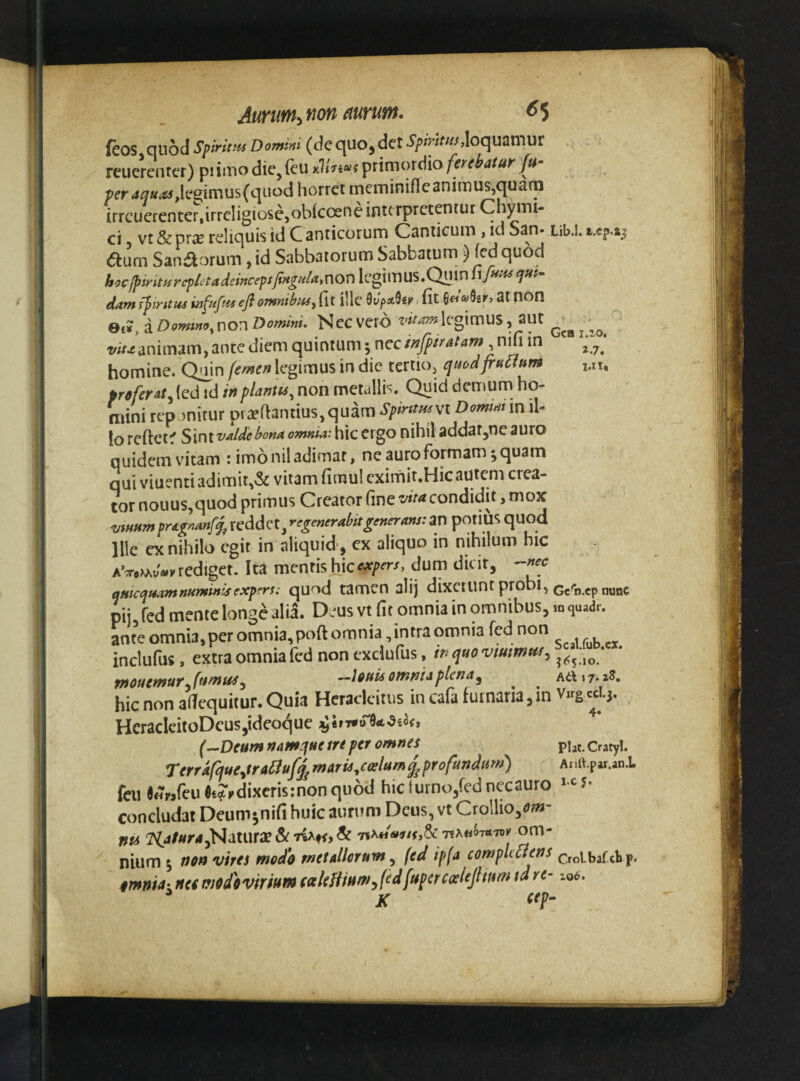 Aurum, non aurum. 65
seos, quòd Spiritus Domini (de quo, det Spiritus, loquamur
reuerenter) primo die, seu primordio ferebatur su-
per aquas, legimus (quod horret meminisse animus, quàm
irreuerenter, irreligiosè, obscoenè interpretentur Chymi-
ci, vt & præ reliquis id Canticorum Canticum, id San- Lib.1. 2.cp.23
ctum Sanctorum, id Sabbatorum Sabbatum;) sed quòd
hoc spiritu repleta deinceps singula, non legimus. Quin si suus qui-
dam spiritus infusus est omnibus, sit ille θύραθεν, sit θείωθεν, at non
Θεῦ, à Domino, non Domini. Nec verò vitam legimus, aut
vitæ animam, ante diem quintum; nec inspiratam, nisi in Gen 1.20. 2.7.
homine. Quin semen legimus in die tertio, quod fructum 1.11.
proferat, sed id in plantis, non metallis. Quid demum ho-
mini reponitur præstantius, quàm Spiritus vt Domini in il-
lo restet? Sint valdè bona omnia: hic ergo nihil addat, ne auro
quidem vitam: imò nil adimat, ne auro formam; quam
qui viuenti adimit, & vitam simul eximit. Hic autem crea-
tor nouus, quod primus Creator sine vita condidit, mox
viuum prægnansq́ reddet, regenerabit generans: an potiùs quod
Ille ex nihilo egit in aliquid, ex aliquo in nihilum hic
rediget. Ita mentis hic expers, dum dicit, —nec
quicquam numinis expers: quod tamen alij dixerunt probi, Gen.cp nunc
pij, sed mente longè aliâ. Deus vt sit omnia in omnibus, in quadr.
ante omnia, per omnia, post omnia, intra omnia sed non
inclusus, extra omnia sed non exclusus, in quo viuimus, Scal.sub.ex. 365.10.
mouemur, sumus, —Iouis omnia plena, Act 17.28.
hic non assequitur. Quia Heracleitus in casa furnaria, in Virg ecl.3.
Heracleito Deus, ideoque 4.
(—Deum namque ire per omnes Plat. Cratyl.
Terrásque, tractusq́ maris, cœlumq́ profundum) Arist.par.an.l.
seu seu dixeris: non quòd hic furno, sed nec auro 1.c 5.
concludat Deum; nisi huic aurum Deus, vt Crollio, om-
nis Natura, Naturæ & & & om-
nium; non vires modò metallorum, sed ipsa complectens Crol.bas chp.
omnia; nec modò virium cœlestium, sed supercœlestium id re- 206.
K cep-